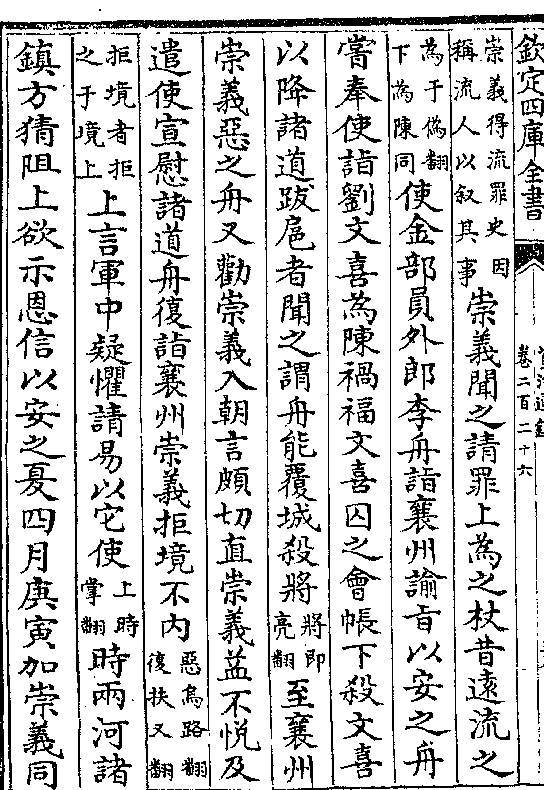 欽定四庫全書
資治通鑑
卷二百二十六
崇義得流罪史因
稱流人以叙其事
崇義聞之請罪上為之杖昔遠流之
為于偽翻
下為陳同
使金部員外郎李舟詣襄州諭旨以安之舟
嘗奉使詣劉文喜為陳禍福文喜囚之會帳下殺文喜
以降諸道跋扈者聞之謂舟能覆城殺將
將即
亮翻
至襄州
崇義惡之舟又勸崇義入朝言頗切直崇義益不悅及
遣使宣慰諸道舟復詣襄州崇義拒境不内
惡烏路翻
復扶又翻
拒境者拒
之于境上
上言軍中疑懼請易以它使
上時
掌翻
時兩河諸
鎮方猜阻上欲示恩信以安之夏四月庚寅加崇義同